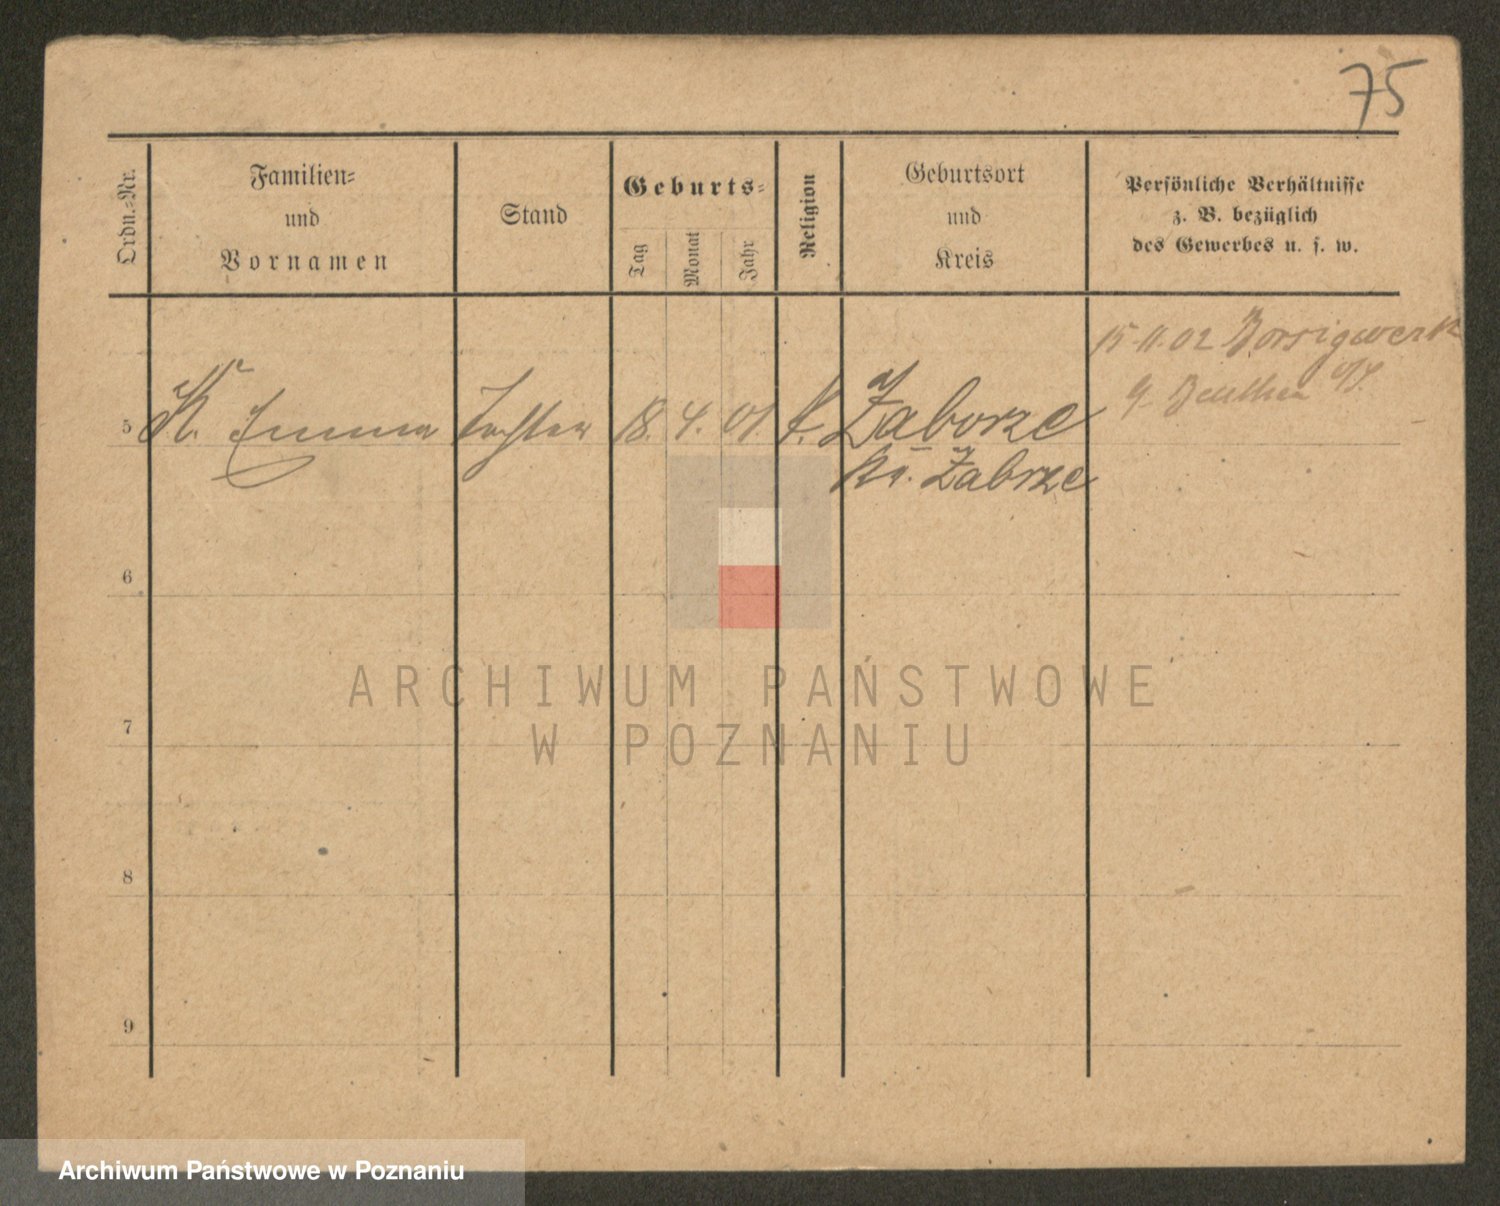 75
Ordn.-Nr.
Familien-
und
Vornamen
Stand
Geburts-
Tag
Monat
Jahr
Religion
Geburtsort
und
Kreis
Persönliche Verhältnisse
z. B. bezüglich
des Gewerbes u. s. w.
15.11.02 Borsigwerk
Beuthen O/S.
5 K. Emma Tochter 18. 4. 01. k. Zaborze
Kr. Zabrze
6
7
8
9
ARCHIWUM PAŃSTWOWE
W POZNANIU
Archiwum Państwowe w Poznaniu